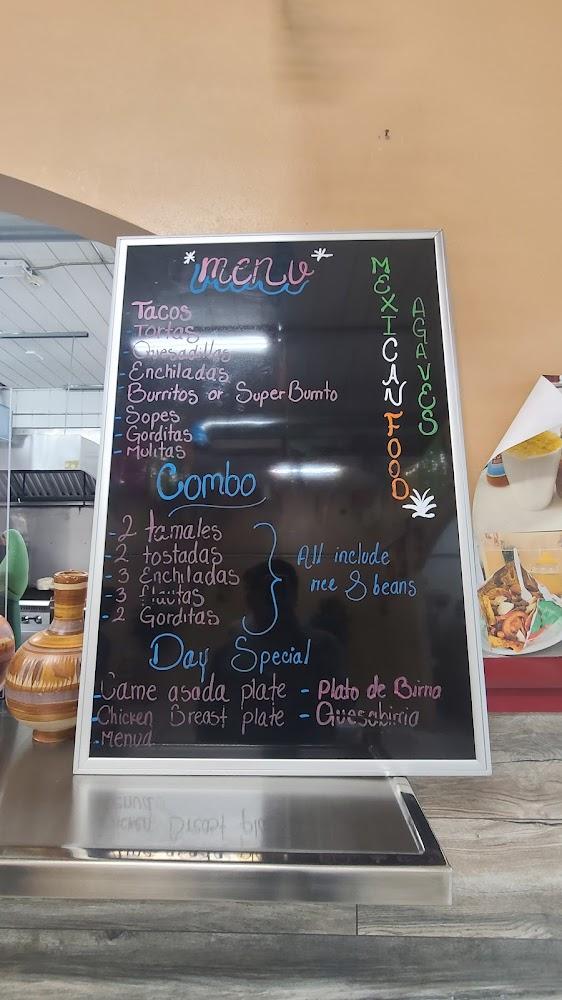 *menu*
MEXICAN FOOD
AGAVES
Tacos
- Tortas
- Quesadillas
- Enchiladas
- Burritos or Super Burrito
- Sopes
- Gorditas
- Mulitas
Combo
- 2 tamales
- 2 tostadas
- 3 Enchiladas
- 3 flautas
- 2 Gorditas
All include
rice & beans
Day Special
- Carne asada plate - Plato de Birria
- Chicken Breast plate - Quesabirria
- Menud